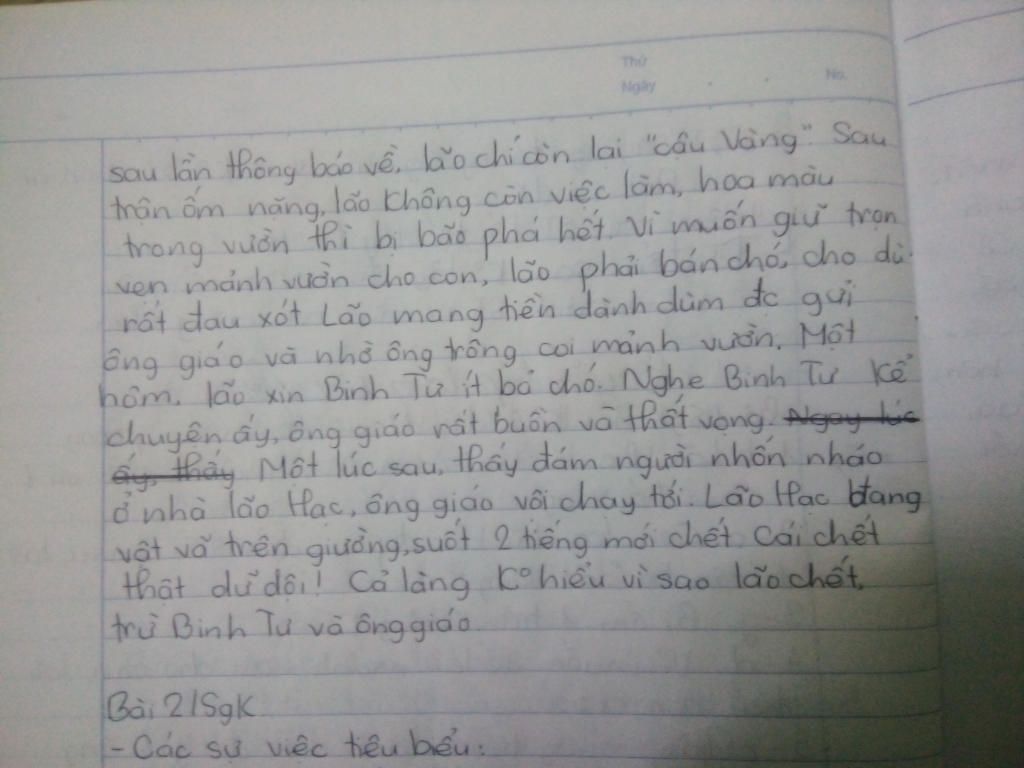 Thứ
Ngày
No.
sau lần thông báo về, lão chỉ còn lại "cậu Vàng". Sau
trận ốm nặng, lão không còn việc làm, hoa màu
trong vườn thì bị bão phá hết. Vì muốn giữ trọn
vẹn mảnh vườn cho con, lão phải bán chó, cho dù
rất đau xót Lão mang tiền dành dùm đc gửi
ông giáo và nhờ ông trông coi mảnh vườn. Một
hôm, lão xin Binh Tư ít bả chó. Nghe Binh Tư kể
chuyện ấy, ông giáo rất buồn và thất vọng. Ngay lúc
ấy, thấy Một lúc sau, thấy đám người nhốn nháo
ở nhà lão Hạc, ông giáo vội chạy tới. Lão Hạc đang
vật vã trên giường, suốt 2 tiếng mới chết. Cái chết
thật dữ dội! Cả làng K° hiểu vì sao lão chết,
trừ Binh Tư và ông giáo.
Bài 2/SgK
- Các sự việc tiêu biểu: